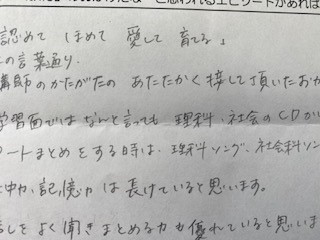 だな」と思われるエピソードがあれば
認めて ほめて 愛して 育てる」
の言葉通り、
講師のかたがたの あたたかく接して頂いたおか
学習面では なんと言っても 理科、社会のCDが
ートまとめをする時は、理科ソング、社会科ソン
中力、記憶力は長けていると思います。
話しをよく聞きまとめる力も優れていると思いま